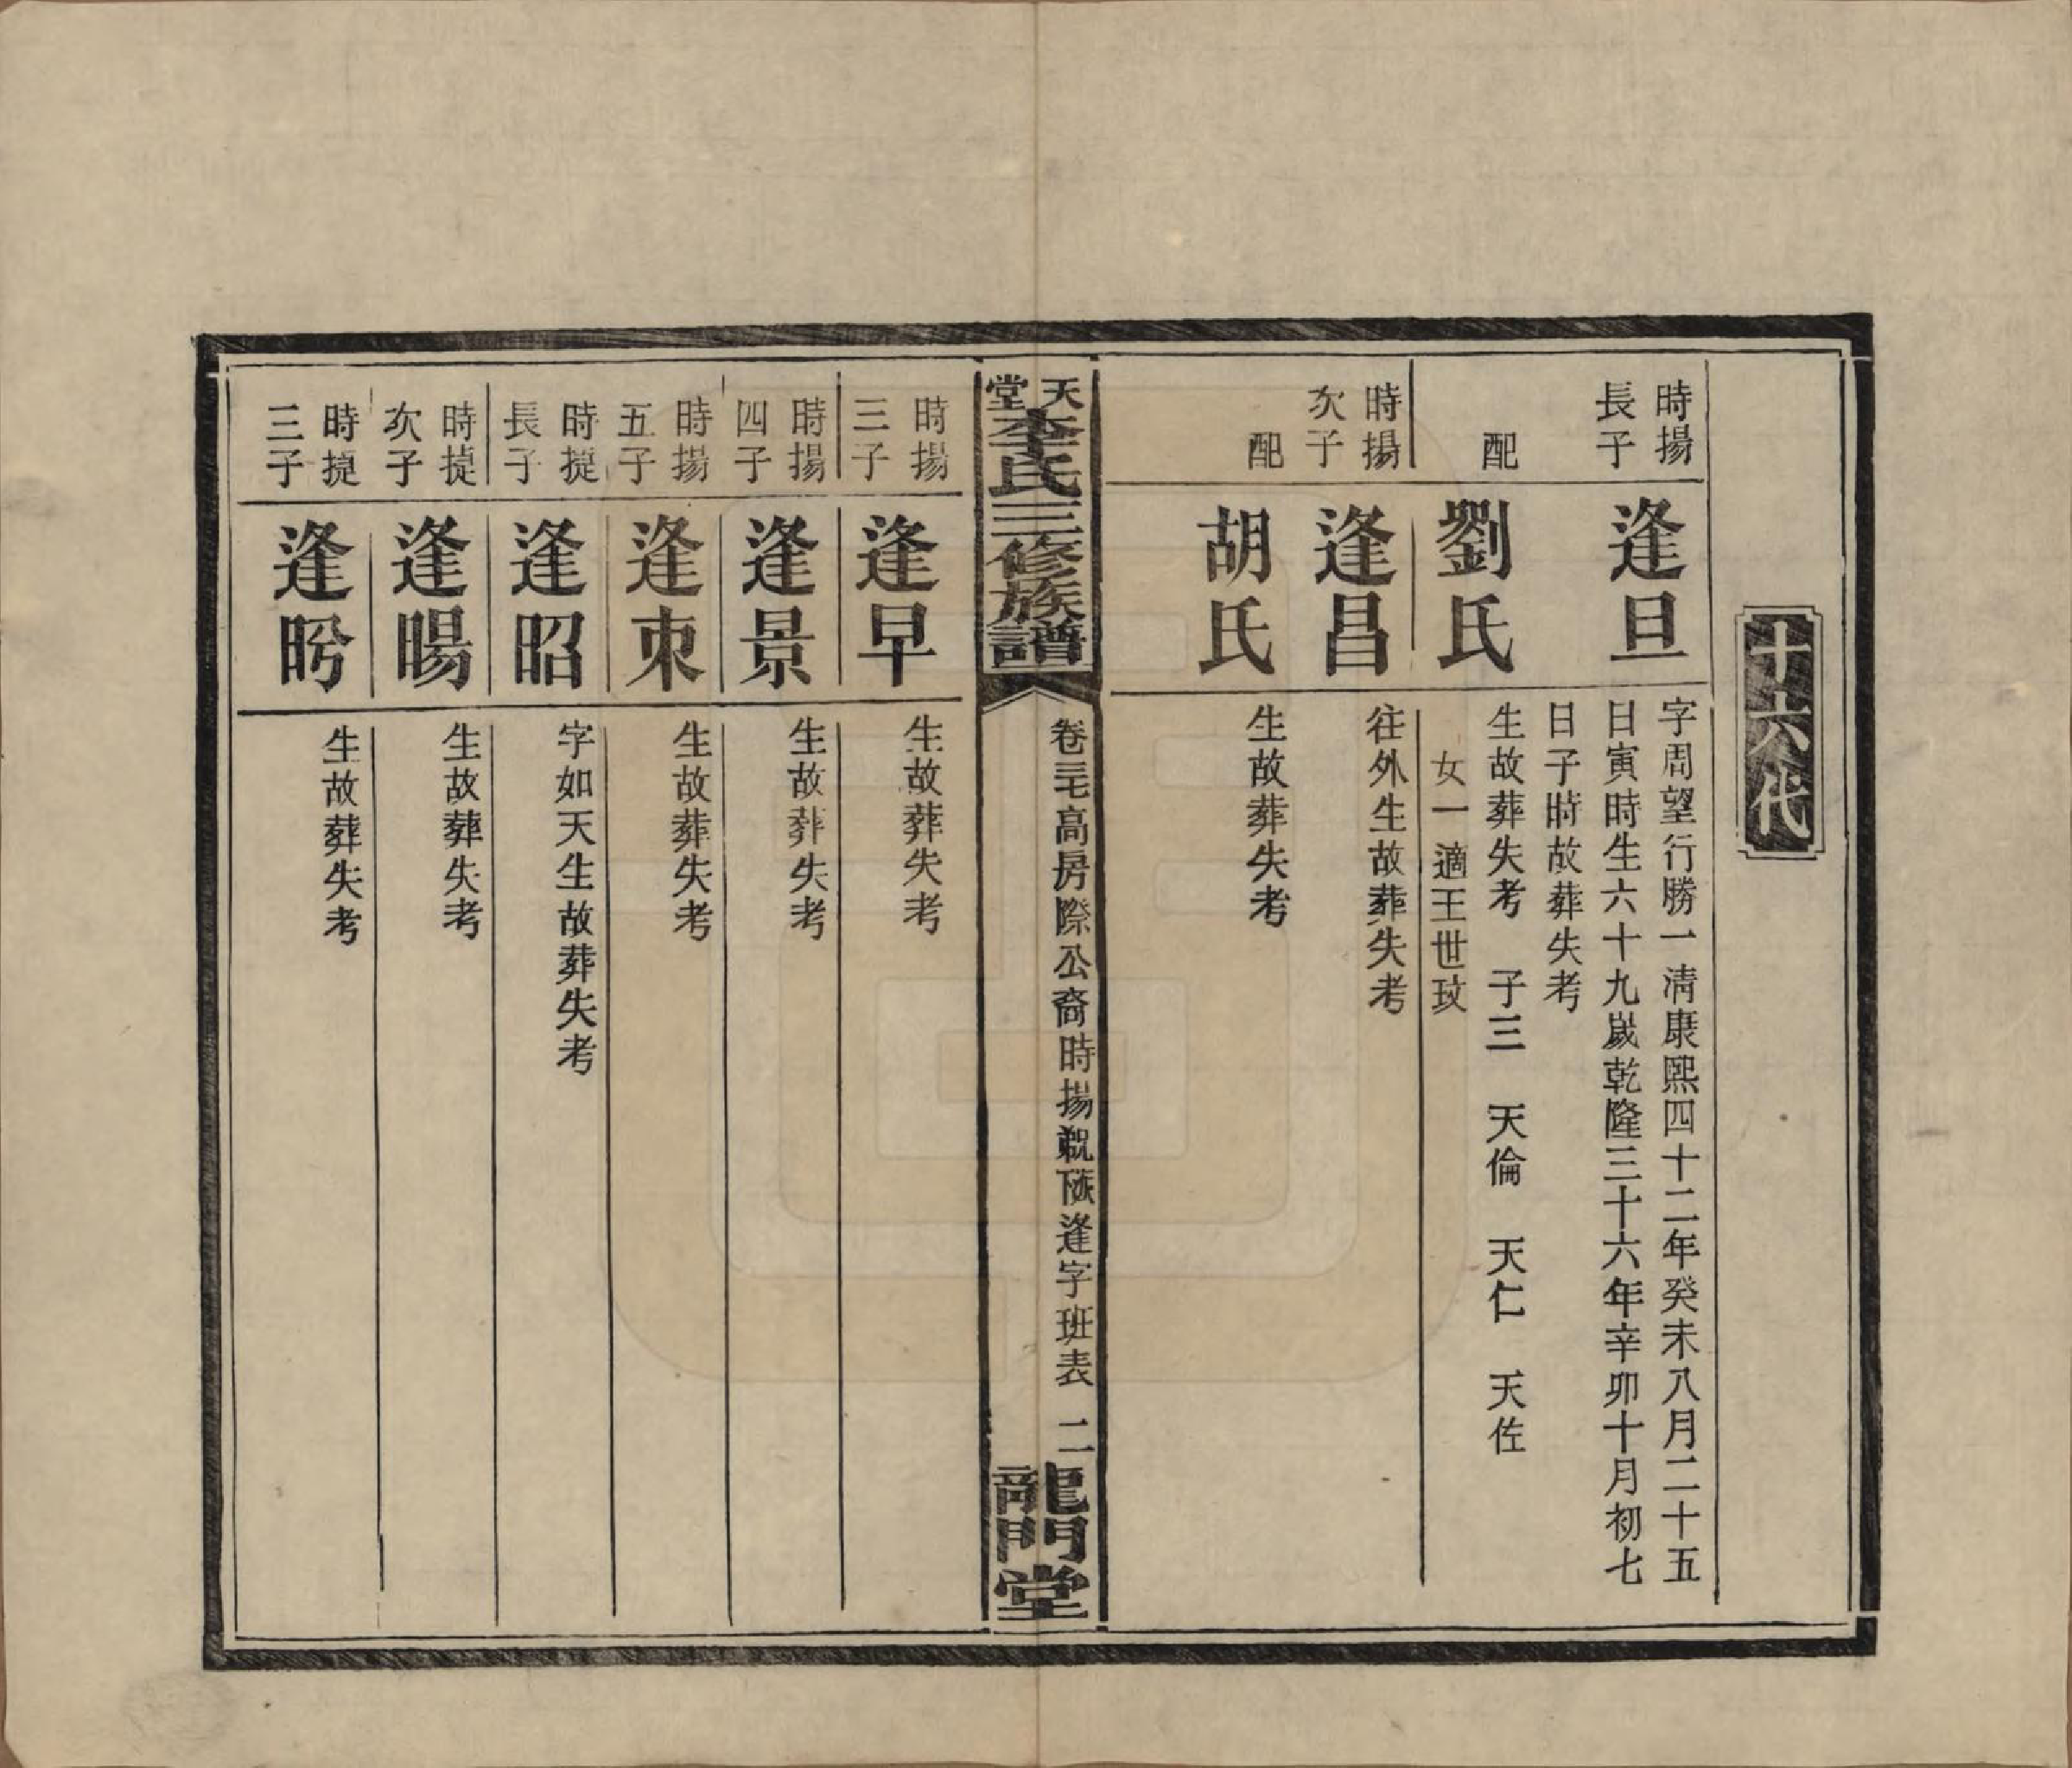 十六代
時揚
長子
逢旦
字周望行勝一清康熙四十二年癸未八月二十五
日寅時生六十九嵗乾隆三十六年辛卯十月初七
日子時故葬失考
配
劉氏
生故葬失考　子三　天倫　天仁　天佐
女一適王世玟
時揚
次子
逢昌
往外生故葬失考
配
胡氏
生故葬失考
天堂李氏三修族譜
卷三七高房際公裔時揚
逢字班表　二
龍門堂
時揚
三子
逢早
生故葬失考
時揚
四子
逢景
生故葬失考
時揚
五子
逢朿
生故葬失考
時提
長子
逢昭
字如天生故葬失考
時提
次子
逢暘
生故葬失考
時提
三子
逢昣
生故葬失考